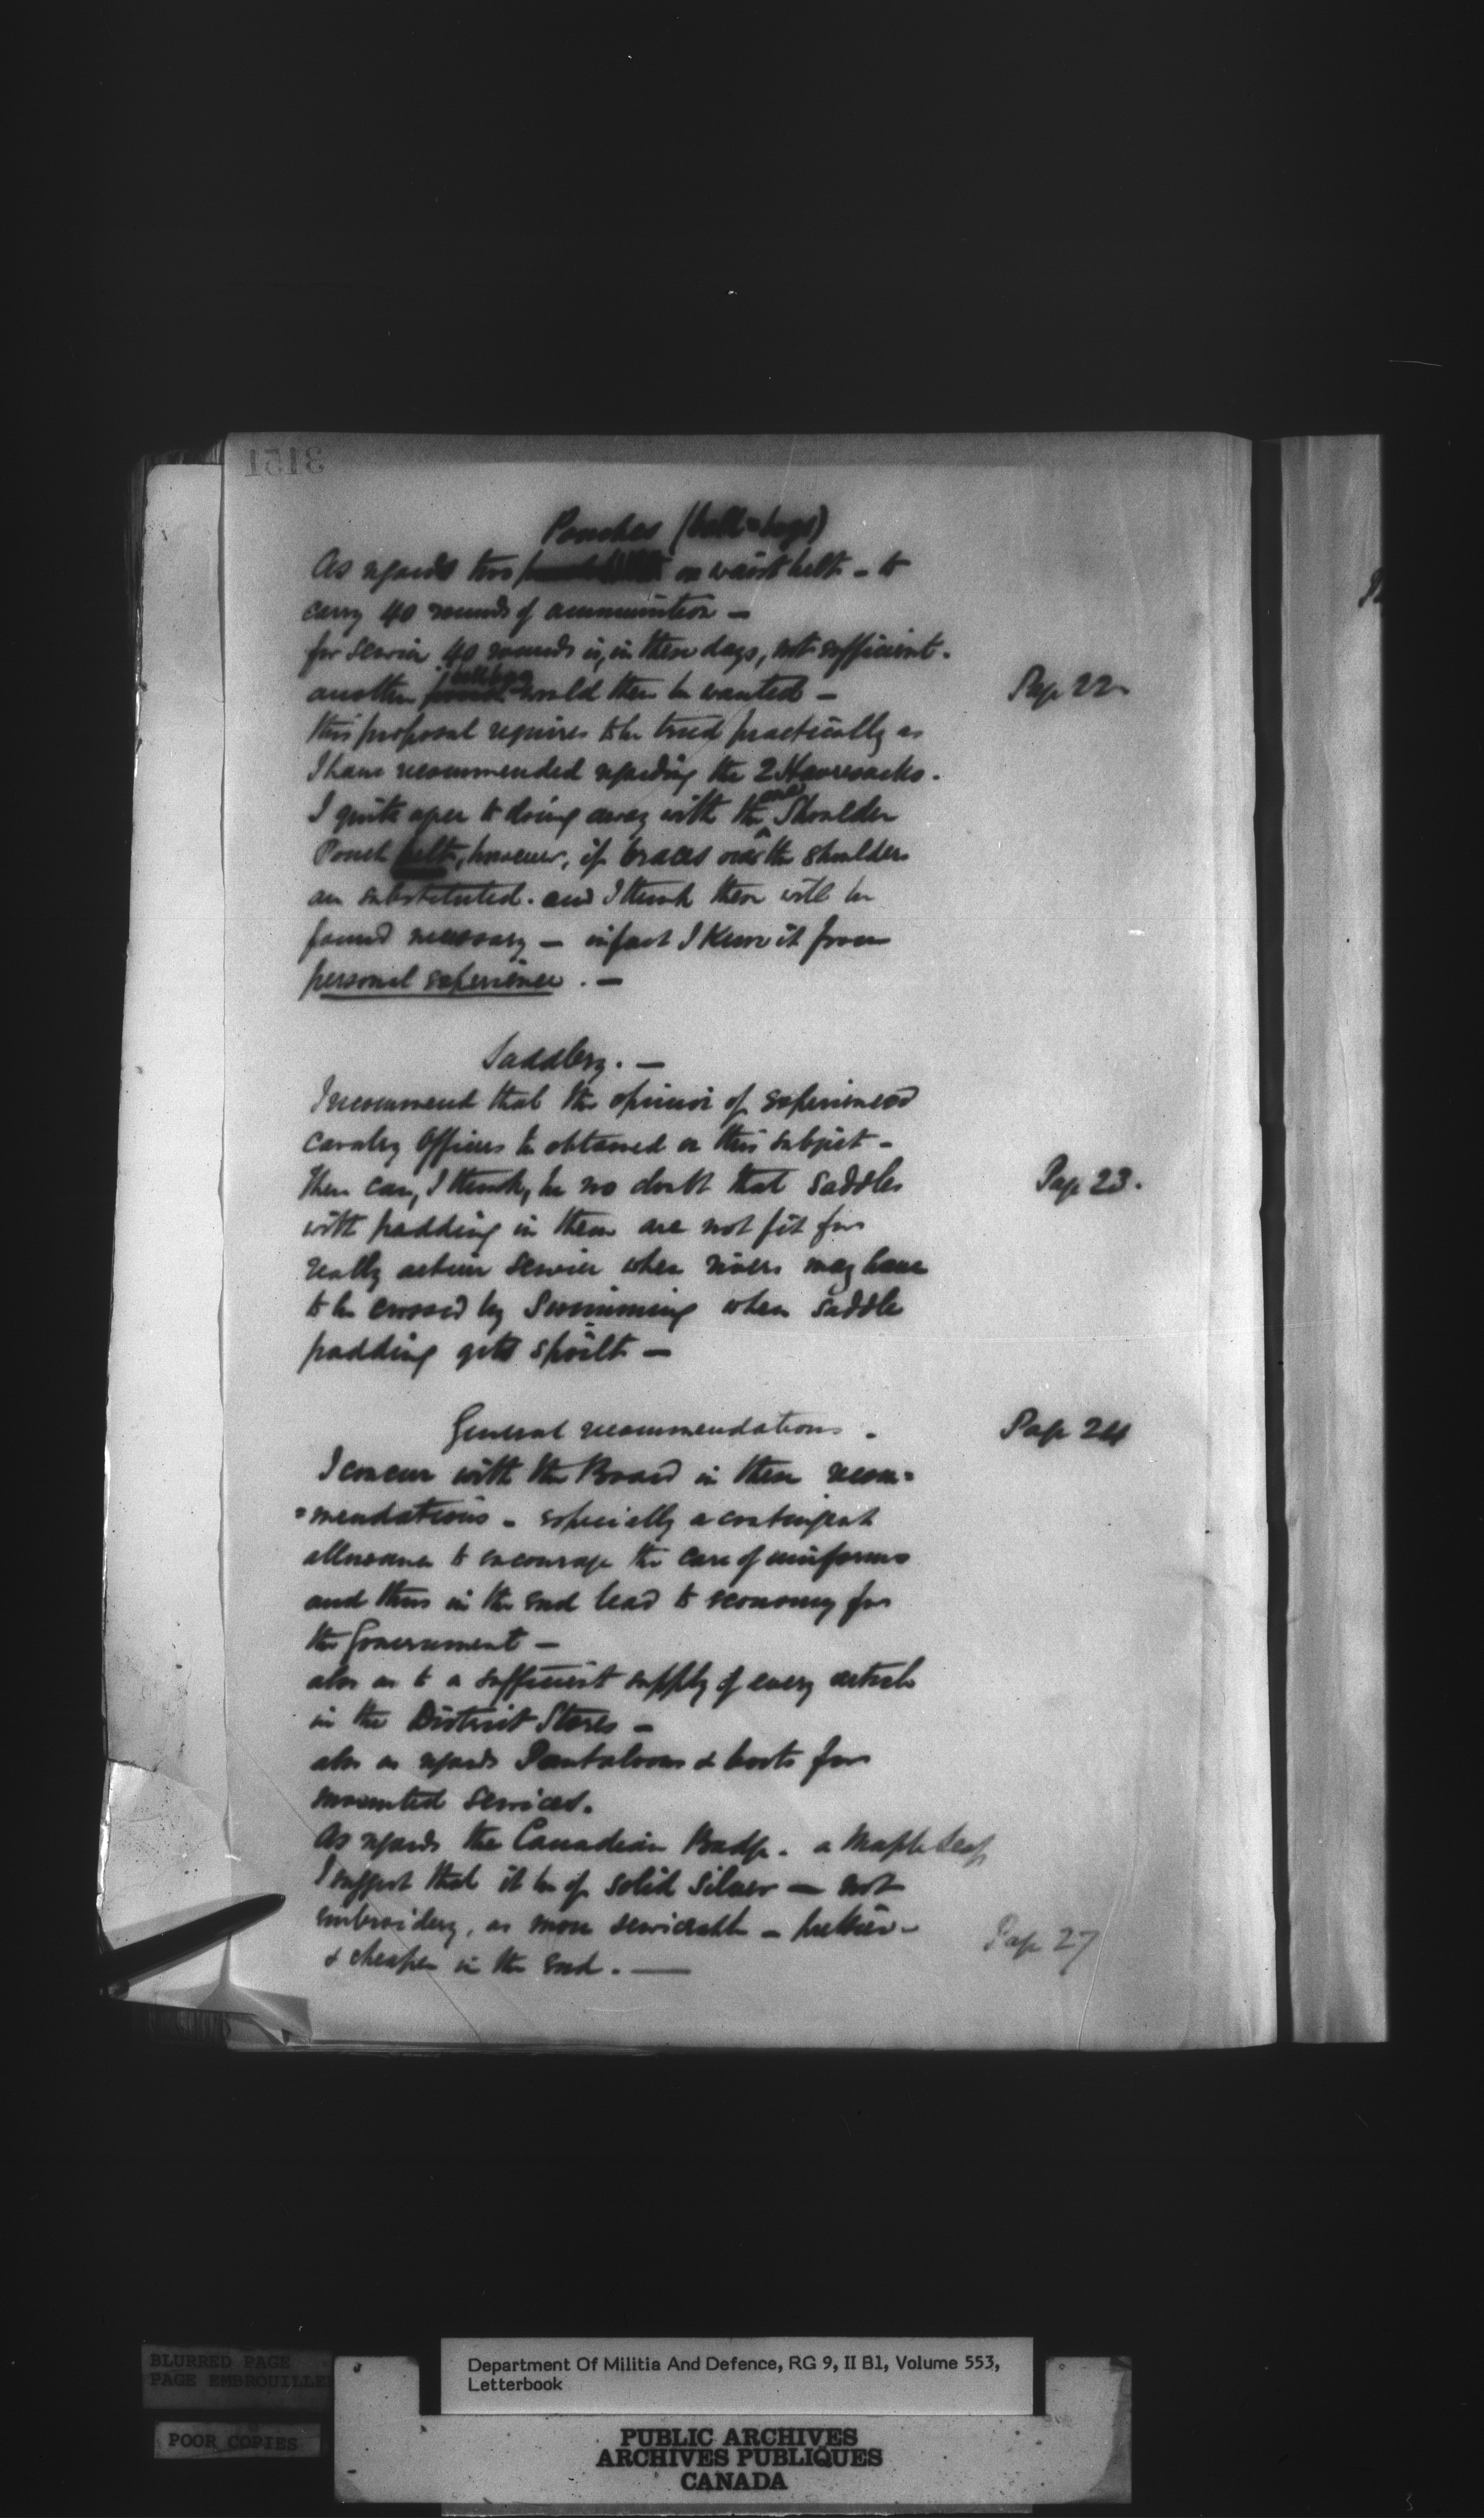 3151
Pouches (ball=bags)
As regards two on waist belt - to
carry 40 rounds of ammunition -
for service 40 rounds is, in these days, not sufficient.
another ball bag would then be wanted -
Page 22
this proposal requires to be tried practically as
I have recommended regarding the 2 Haversacks.
I quite agree to doing away with the one Shoulder
Pouch belt, however, if braces over the shoulders
are substituted. and I think these will be
found necessary - in fact I know it from
personal experience. -
Saddlery. -
I recommend that the opinion of experienced
Cavalry Officers be obtained on this subject -
There can, I think, be no doubt that saddles
Page 23.
with padding in them are not fit for
really active service when rivers may have
to be crossed by Swimming when saddle
padding gets spoilt -
General recommendations.
Page 24
I concur with the Board in these recom=
=mendations - especially a contingent
allowance to encourage the care of uniforms
and thus in the end lead to economy for
the Government -
also as to a sufficient supply of every article
in the District Stores -
also as regards Pantaloons & boots for
mounted services.
As regards the Canadian Badge. a Maple Leaf
I suggest that it be of solid silver - not
embroidery, as more serviceable - better -
Page 27
& cheaper in the end. -
BLURRED PAGE
PAGE EMBROUILLEE
POOR COPIES
Department Of Militia And Defence, RG 9, II B1, Volume 553,
Letterbook
PUBLIC ARCHIVES
ARCHIVES PUBLIQUES
CANADA